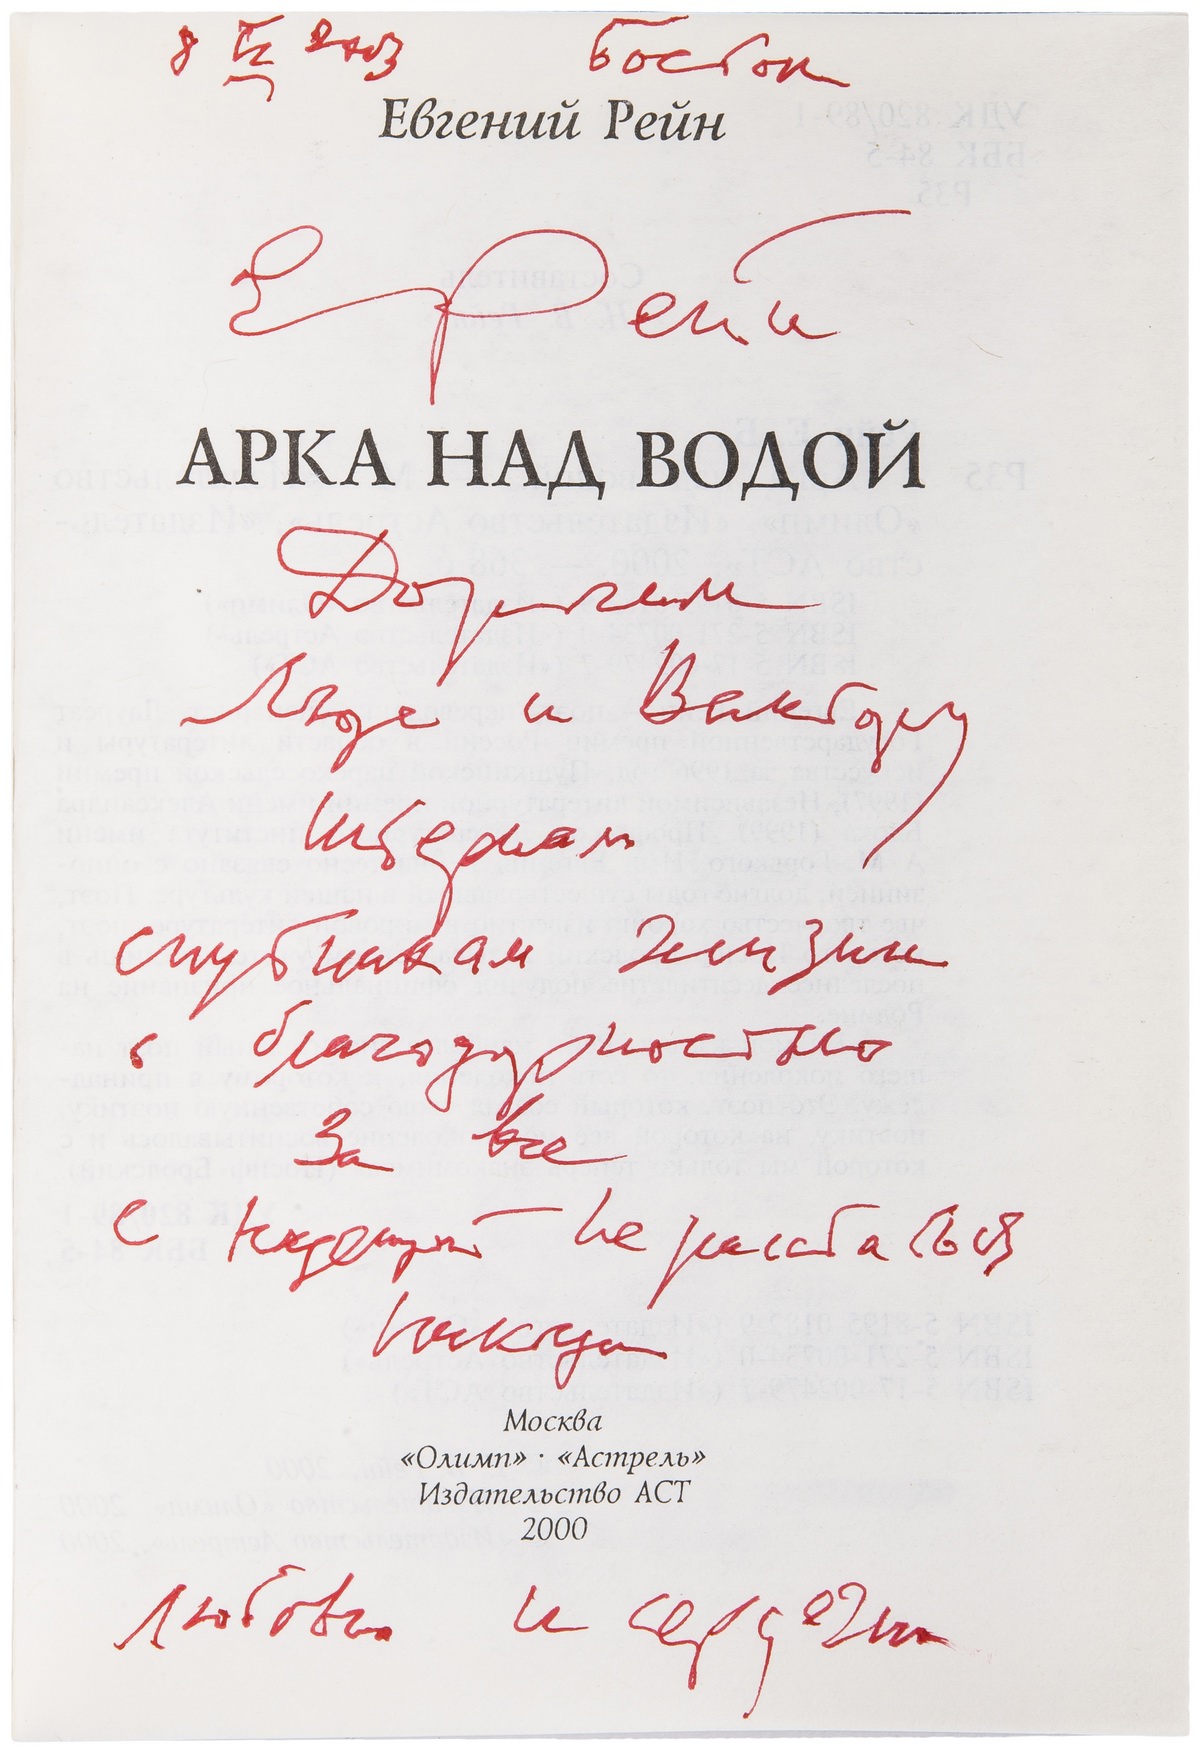 8 IX 2003 Бостон
Евгений Рейн
Е Рейн
АРКА НАД ВОДОЙ
Дорогим
Люде и Виктору
Штернам
спутникам жизни
с благодарностью
За все
с надеждой не расставаться
никогда
Москва
«Олимп» · «Астрель»
Издательство АСТ
2000
Любовно и сердечно